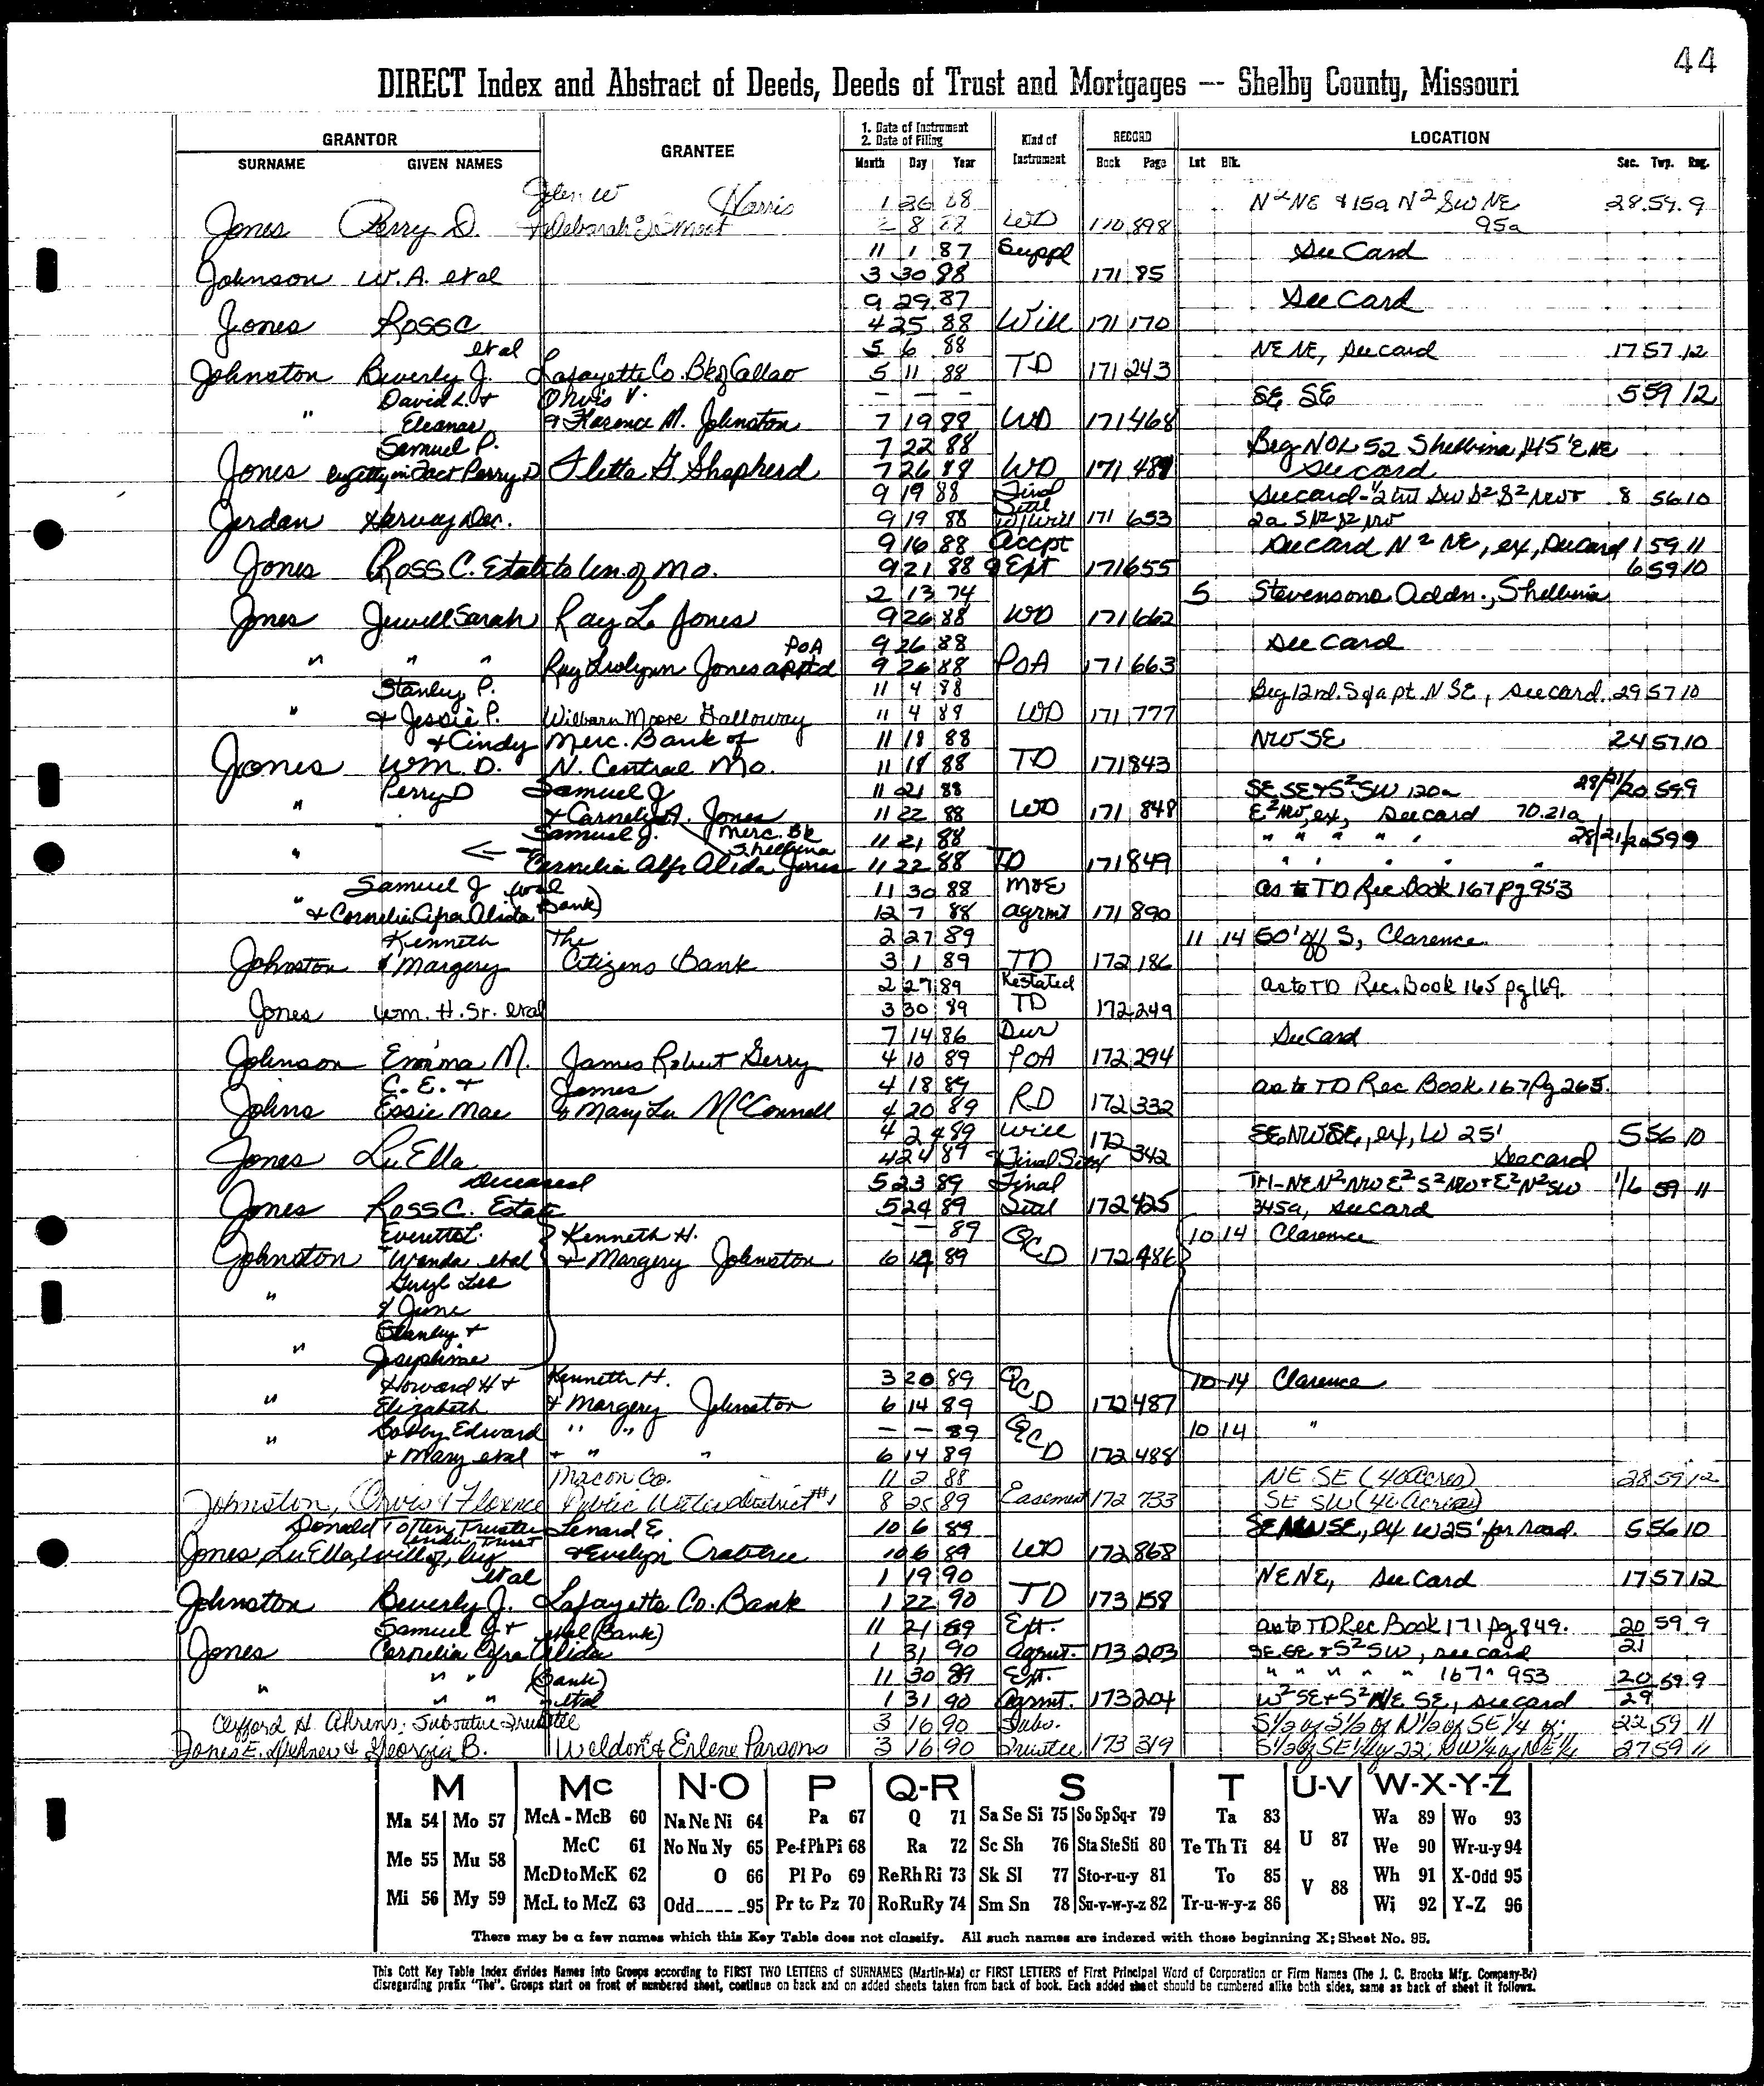 44
DIRECT Index and Abstract of Deeds, Deeds of Trust and Mortgages -- Shelby County, Missouri
GRANTOR GRANTEE 1. Date of Instrument 2. Date of Filing Kind of Instrument RECORD LOCATION
SURNAME GIVEN NAMES Month Day Year Book Page Lot Blk. Sec. Twp. Rng.
Glen W Harris 1 26 88 N²NE & 15a N² SW NE 28 59 9
Jones Perry D. & Deborah J Smoot 2 8 88 WD 170 898 95a
11 1 87 Suppl See Card
Johnson W.A. etal 3 30 88 171 85
9 29 87 See Card
Jones Ross C 4 25 88 Will 171 170
etal 5 6 88 NE NE, See card 17 57 12
Johnston Beverly J. Lafayette Co. Bk of Callao 5 11 88 TD 171 243
David L. & Orvis V. — — — SE SE 5 59 12
" Eleanor & Florence M. Johnston 7 19 88 WD 171 468
Samuel P. 7 22 88 Beg NOL 52 Shelbina, 145' E NE
Jones by atty in Fact Perry D Fletta G Shapherd 7 26 88 WD 171 489 See card
9 19 88 Final See card - ½ int SW S² S² NW & 8 56 10
Jordan Harvey Dec. 9 19 88 Setl w/Will 171 653 2a S N² S² NW
9 16 88 Accpt See Card N² NE, ex, See Card 1 59 11
Jones Ross C. Estate to Un of Mo. 9 21 88 & Ept 171 655 6 59 10
2 13 74 5 Stevensons Addn., Shelbina
Jones Jewell Sarah Ray L Jones 9 26 88 WD 171 662
POA 9 26 88 See Card
" " " Ray Jones app'td 9 26 88 POA 171 663
Stanley P. 11 4 88 Beg 12 rd. S of a pt. N SE, see card 29 57 10
" & Jessie P. Wilburn Moore Galloway 11 4 88 WD 171 777
& Cindy Merc. Bank of 11 18 88 NW SE 24 57 10
Jones Wm. D. N. Central Mo. 11 18 88 TD 171 843
Perry D Samuel J 11 21 88 SE SE & S² SW 120a 28/21/20 59 9
" & Cornelia A. Jones 11 22 88 WD 171 848 E² NW, ex, See card 70.21a
Samuel J. Merc. Bk Shelbina 11 21 88 " " " " " 28/21/20 59 9
" ← Cornelia Alfa Alida Jones 11 22 88 TD 171 849 " " " " "
Samuel J (etal 11 30 88 M&E as to TD Rec Book 167 pg 953
" & Cornelia Afra Alida Bank) 12 7 88 agrmt 171 890
Kenneth The 2 27 89 11 14 50' off S, Clarence
Johnston & Margery Citizens Bank 3 1 89 TD 172 186
2 27 89 Restated as to TD Rec. Book 165 pg 169.
Jones Wm. H. Sr. etal 3 30 89 TD 172 249
7 14 86 Dur See Card
Johnson Emma M. James Robert Gerry 4 10 89 POA 172 294
C. E. & James 4 18 89 as to TD Rec Book 167 Pg 265.
Johns Essie Mae & Mary Lu McConnell 4 20 89 RD 172 332
4 24 89 Will SE NW SE, ex, W 25' 5 56 10
Jones LuElla 4 24 89 & Final Setl 172 342 See card
Deceased 5 23 89 Final TH-NE N² NW E² S² NW & E² N² SW 1/6 59 11
Jones Ross C. Estate 5 24 89 Setl 172 425 345a, See card
Everett L. Kenneth H. — — 89 10 14 Clarence
Johnston & Wanda etal & Margery Johnston 6 14 89 QCD 172 486
Geryl Lee
" & June
Stanley &
" Josephine
Howard H & Kenneth H. 3 20 89 10 14 Clarence
" Elizabeth & Margery Johnston 6 14 89 QCD 172 487
Bobby Edward " " — — 89 10 14 "
" & Mary etal & " " 6 14 89 QCD 172 488
Macon Co. 11 2 88 NE SE (40 Acres) 28 59 12
Johnston, Orvis & Florence Public Water District #1 8 25 89 Easement 172 733 SE SW (40 Acres)
Donald Totten, Trustee Lenard E. 10 6 89 SE NW SE, ex W 25' for road. 5 56 10
Jones LuElla, will of, by under Trust & Evelyn Crabtree 10 6 89 WD 172 868
etal 1 19 90 NE NE, See Card 17 57 12
Johnston Beverly J. Lafayette Co. Bank 1 22 90 TD 173 158
Samuel J. & etal (Bank) 11 21 89 Ext. as to TD Rec Book 171 pg 849. 20 59 9
Jones Cornelia Afra Alida 1 31 90 Agmt. 173 203 SE SE & S² SW, see card 21
" " (Bank) 11 30 89 Ext. " " " " " 167 " 953 20 59 9
" " " etal 1 31 90 Agrmt. 173 204 W² SE & S² NE SE, see card 29
Clifford H. Ahrens, Substitute Trustee 3 16 90 Subs. S1/2 of S1/2 of N1/2 of SE 1/4 of 22 59 11
Jones E. & Georgia B. Weldon & Erlene Parsons 3 16 90 Trustee 173 319 S1/2 of SE1/4 of 22; NW1/4 of NE1/4 27 59 11
M Mc N-O P Q-R S T U-V W-X-Y-Z
Ma 54 Mo 57 McA - McB 60 Na Ne Ni 64 Pa 67 Q 71 Sa Se Si 75 So Sp Sq-r 79 Ta 83 U 87 Wa 89 Wo 93
Me 55 Mu 58 McC 61 No Nu Ny 65 Pe-f Ph Pi 68 Ra 72 Sc Sh 76 Sta Ste Sti 80 Te Th Ti 84 We 90 Wr-u-y 94
McD to McK 62 O 66 Pl Po 69 Re Rh Ri 73 Sk Sl 77 Sto-r-u-y 81 To 85 V 88 Wh 91 X-Odd 95
Mi 56 My 59 McL to McZ 63 Odd____95 Pr to Pz 70 Ro Ru Ry 74 Sm Sn 78 Su-v-w-y-z 82 Tr-u-w-y-z 86 Wi 92 Y-Z 96
There may be a few names which this Key Table does not classify. All such names are indexed with those beginning X; Sheet No. 95.
This Cott Key Table Index divides Names into Groups according to FIRST TWO LETTERS of SURNAMES (Martin-Ma) or FIRST LETTERS of First Principal Word of Corporation or Firm Names (The J. C. Brooks Mfg. Company-Br)
disregarding prefix "The". Groups start on front of numbered sheet, continue on back and on added sheets taken from back of book. Each added sheet should be numbered alike both sides, same as back of sheet it follows.